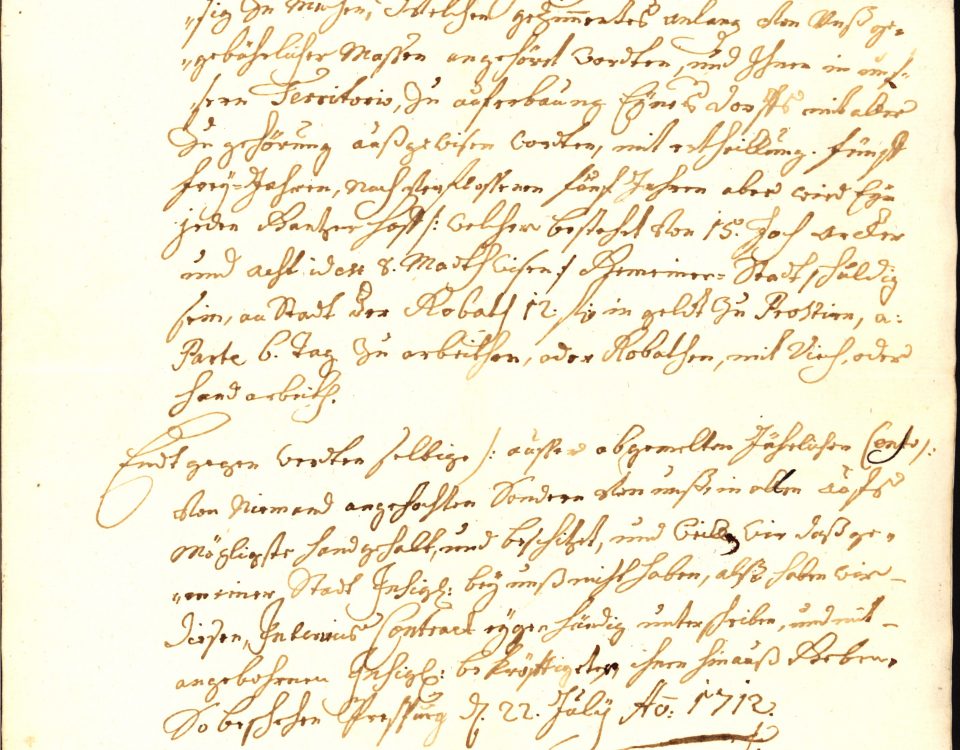 „sig zu machen, Welchen gezimmentes anlang von Unß ge„
„gebührlicher Massen angehöret wordten, und Ihnen in unß„
„sern Territorio, zu auferbauung Eynes dorffs mit aller
zu gehörung außgewisen wordten, mit ertheillung fünff
frey=Jahren, nach verflossenen fünf Jahren aber wird Eyn
jeden Gantzer Hoff /: welcher bestehet von 15. Joch äcker
und acht idest 8. Madth Wisen :/ Gemeiner= Stadt schuldig
sein, an Stadt der Robath 12 fl in geldt zu Prostirn, a:
Parte 6. Tag zu arbeithen, oder Robathen, mit Vieh, oder
hand arbeith.
Endtgegen werden selbige /: ausser abgemelten Jährlichen Cense :/
von Niemand angefochten Sondern von unß, in allen aufs
Möglichste handgehalt, und beschitzet, und Weillen wir daß ge„
„meiner Stadt Insigl: bey unß nicht haben, alß haben wir
diesen Interims Contract eygenhändig unterschriben, und mit
angebohrnen Insigl: bekräfftigter ihnen hinauß Geben,
So beschehen Pressburg d. 22. July Ao: 1712.